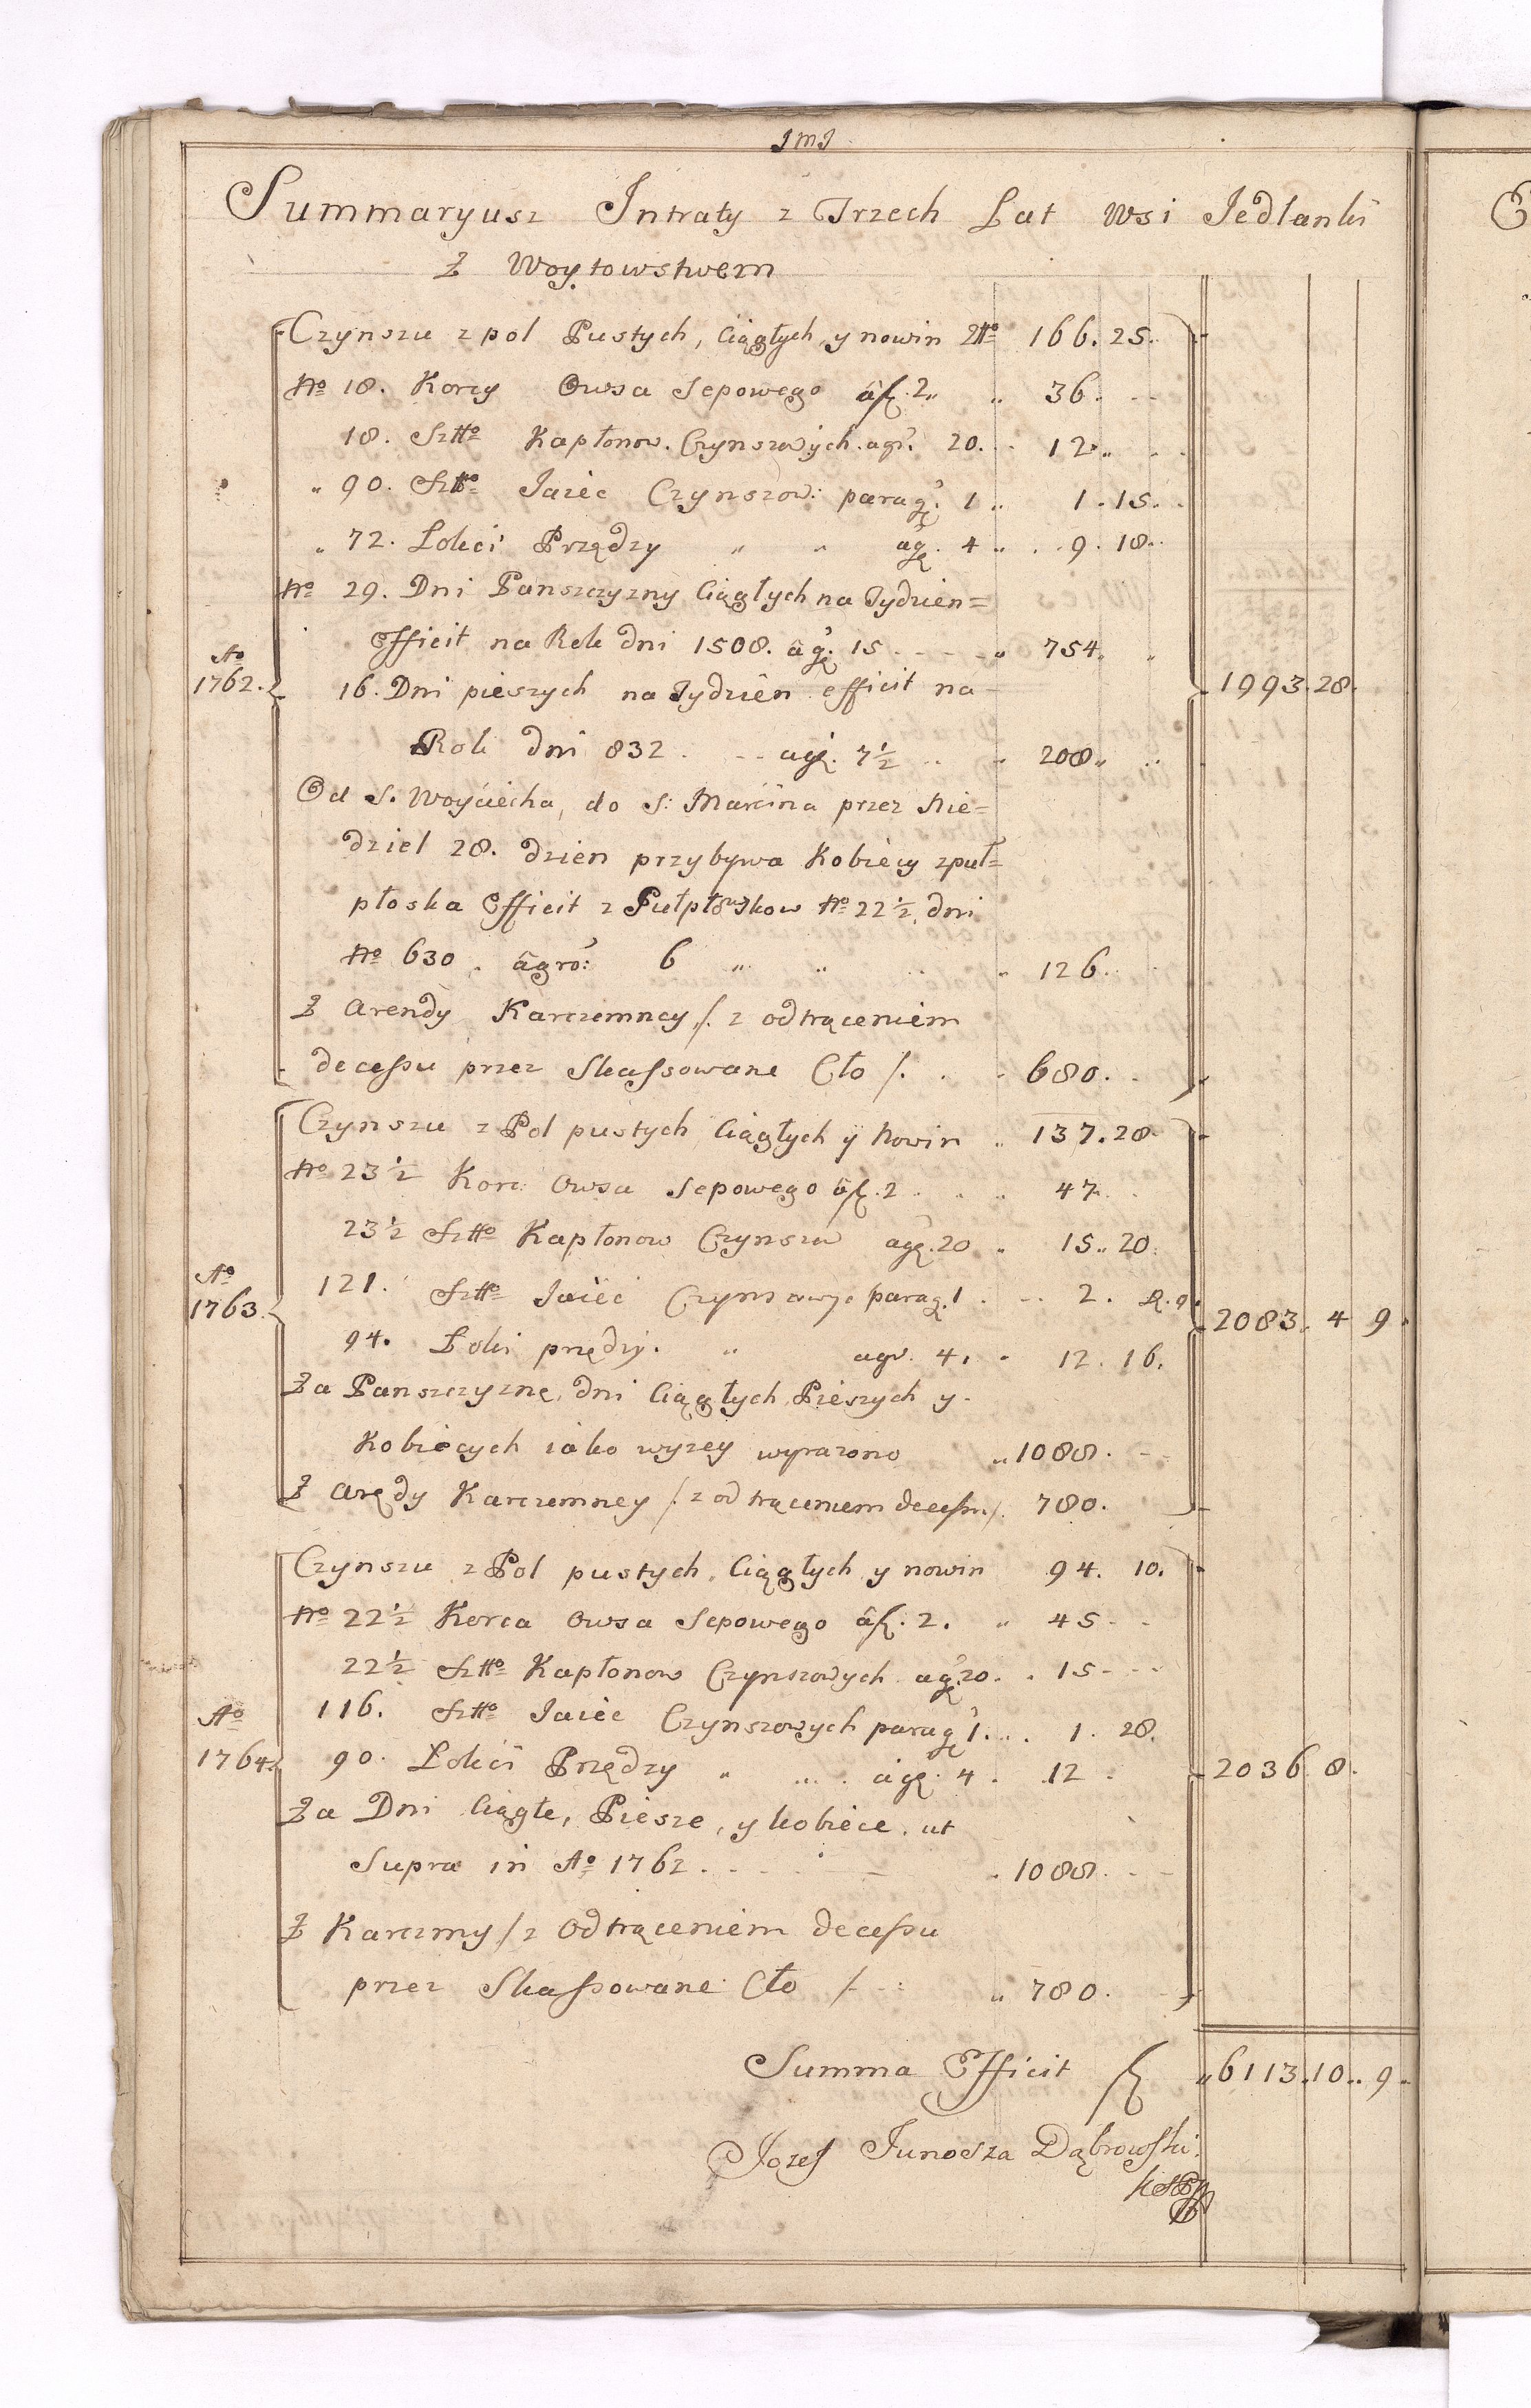 JMJ
Summaryusz Intraty z Trzech Lat Wsi Jedlanki
Z Woytowstwem
Czynszu z pol Pustych, Ciągłych, y nowin Zło 166. 25.
No 18. Korcy Owsa Sepowego â f. 2 „ „ 36. - -
18. Sztto Kapłonow. Czynszowych. agr. 20. - 12 „ - -
„ 90. Sztto Jaiec Czynszow: para g. 1 „ 1. 15.
„ 72. Lokci Przędzy „ „ ag. 4 „ . 9. 18.
No 29. Dni Panszczyzny Ciągłych na Tydzien=
Efficit na Rok dni 1508. â g. 15 - - - - „ 754. „
Ao
1762. 16. Dni pieszych na Tydzien efficit na 1993. 28.
Rok dni 832. - - ag. 7½ .. - 208 „ ..
Od S. Woyciecha, do S: Marcina przez Nie=
dziel 28. dzien przybywa Kobiecy z puł=
płoska Efficit z Pułpłoskow No 22½ dni
No 630. âgro: 6 „ „ .. - 126.
Z Arendy Karczemney /. z odtrąceniem
decessu przez Skassowane Cło /. . - 680. .
Czynszu z Pol pustych Ciągłych y Nowin „ 137. 28.
No 23½ Korc: Owsa Sepowego â f. 2 . . „ 47. .
23½ Sztto Kapłonow Czynszow ag. 20 „ 15 „ 20.
Ao
1763. 121. Sztto Jaiec Czynszowych para g. 1 . - - 2. 2083. 4 9.
94. Lokci przędzy. „ agr. 4. - 12. 16.
Za Panszczyznę, dni Ciągłych, Pieszych y
Kobiecych iako wyzey wyrazono „ 1088. - -
Z Arędy Karczemney /. z odtrąceniem decessu /. 780.
Czynszu z Pol pustych, Ciągłych y nowin 94. 10.
No 22½ Korca Owsa Sepowego â f. 2. „ 45 - -
22½ Sztto Kapłonow Czynszowych ag. 20. . 15 - - -
Ao 116. Sztto Jaiec Czynszowych para g. 1. .. . 1. 28.
1764. 90. Lokci Przędzy „ ... . â g. 4 . . 12 . 2036 8.
Za Dni Ciągłe, Piesze, y kobiece. ut
Supra in Ao 1762. - - - . 1088. - -
Z Karczmy /. z Odtrąceniem decessu
przez Skassowane Cło /. - : „ 780.
Summa Efficit f „ 6113. 10 .. 9.
Jozef Junosza Dąbrowski